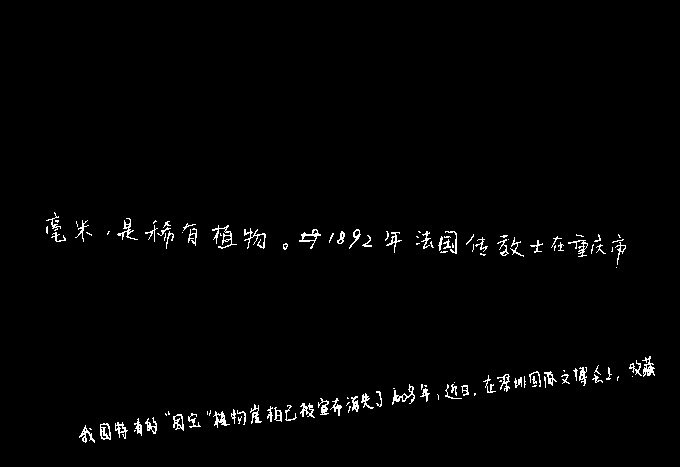 毫米，是稀有植物。1892年法国传教士在重庆市
我国特有的“国宝”植物崖柏已被宣布消失了100多年，近日，在深圳国际文博会上，收藏